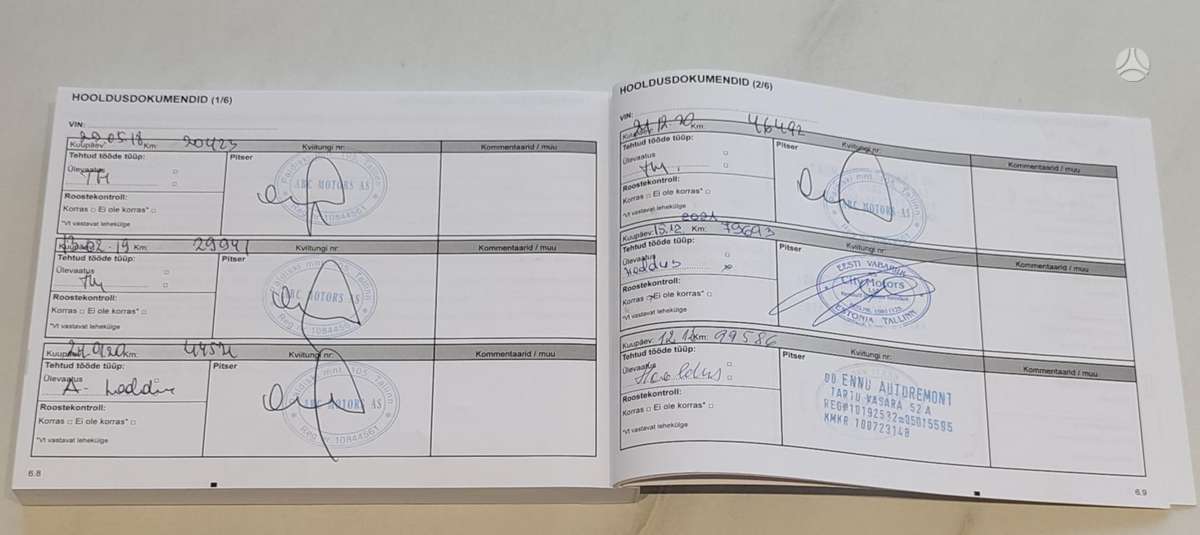 HOOLDUSDOKUMENDID (1/6)
VIN:
Kuupäev: 22.05.18 Km: 20423 Kviitungi nr: Kommentaarid / muu
Tehtud tööde tüüp: Pitser
Ülevaatus
TH
Roostekontroll:
Korras Ei ole korras*
*Vt vastavat lehekülge
Paldiski mnt. 105, Tallinn
ABC MOTORS AS
Reg nr. 10844561
Kuupäev: 02-19 Km: 29941 Kviitungi nr: Kommentaarid / muu
Tehtud tööde tüüp: Pitser
Ülevaatus
TH
Roostekontroll:
Korras Ei ole korras*
*Vt vastavat lehekülge
Paldiski mnt. 105, Tallinn
ABC MOTORS AS
Reg nr. 10844561
Kuupäev: Km: Kviitungi nr: Kommentaarid / muu
Tehtud tööde tüüp: Pitser
Ülevaatus
A- hooldus
Roostekontroll:
Korras Ei ole korras*
*Vt vastavat lehekülge
Paldiski mnt. 105, Tallinn
ABC MOTORS AS
Reg nr. 10844561
6.8
HOOLDUSDOKUMENDID (2/6)
VIN:
Kuupäev: 21.12.20 Km: 46492 Kviitungi nr: Kommentaarid / muu
Tehtud tööde tüüp: Pitser
Ülevaatus
TH
Roostekontroll:
Korras Ei ole korras*
*Vt vastavat lehekülge
Paldiski mnt. 105, Tallinn
ABC MOTORS AS
2021
Kuupäev: 15.12 Km: 79693 Kviitungi nr: Kommentaarid / muu
Tehtud tööde tüüp: Pitser
Ülevaatus
Hooldus
Roostekontroll:
Korras Ei ole korras*
*Vt vastavat lehekülge
EESTI VABARIIK
City Motors
ESTONIA TALLINN
Kuupäev: 12.12 Km: 99586 Kviitungi nr: Kommentaarid / muu
Tehtud tööde tüüp: Pitser
Ülevaatus
Hooldus
Roostekontroll:
Korras Ei ole korras*
*Vt vastavat lehekülge
OÜ ENNU AUTOREMONT
TARTU VASARA 52 A
REG#10192532 05015595
KMKR 100723148
6.9